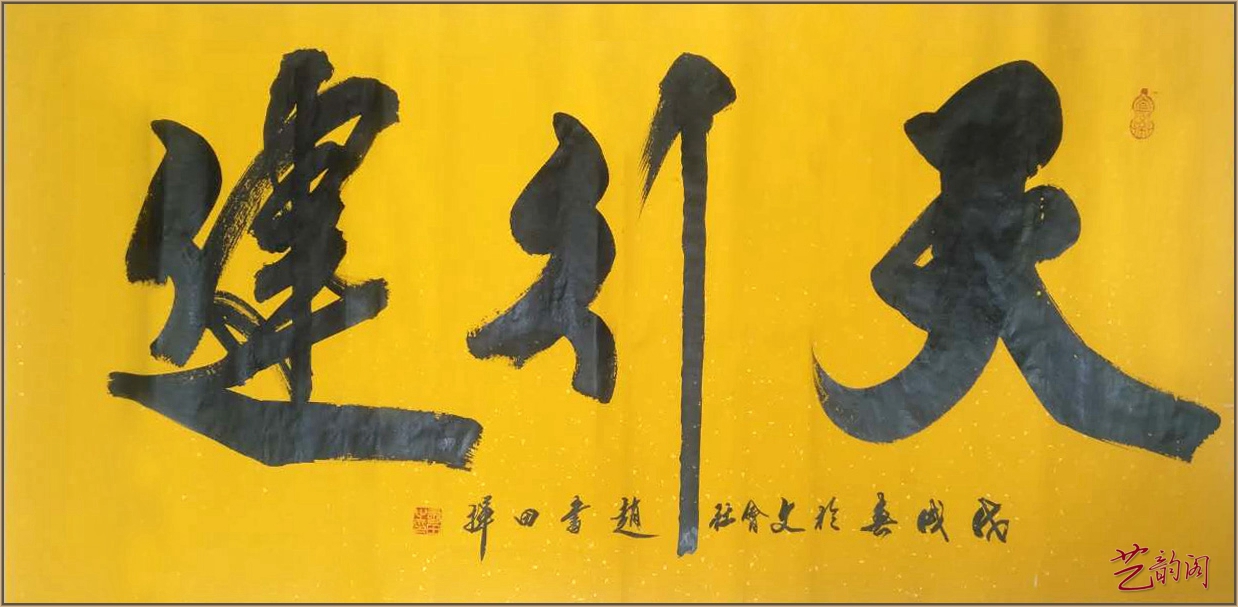 天行健
戊戌春於文會社 趙書田揮
艺韵阁